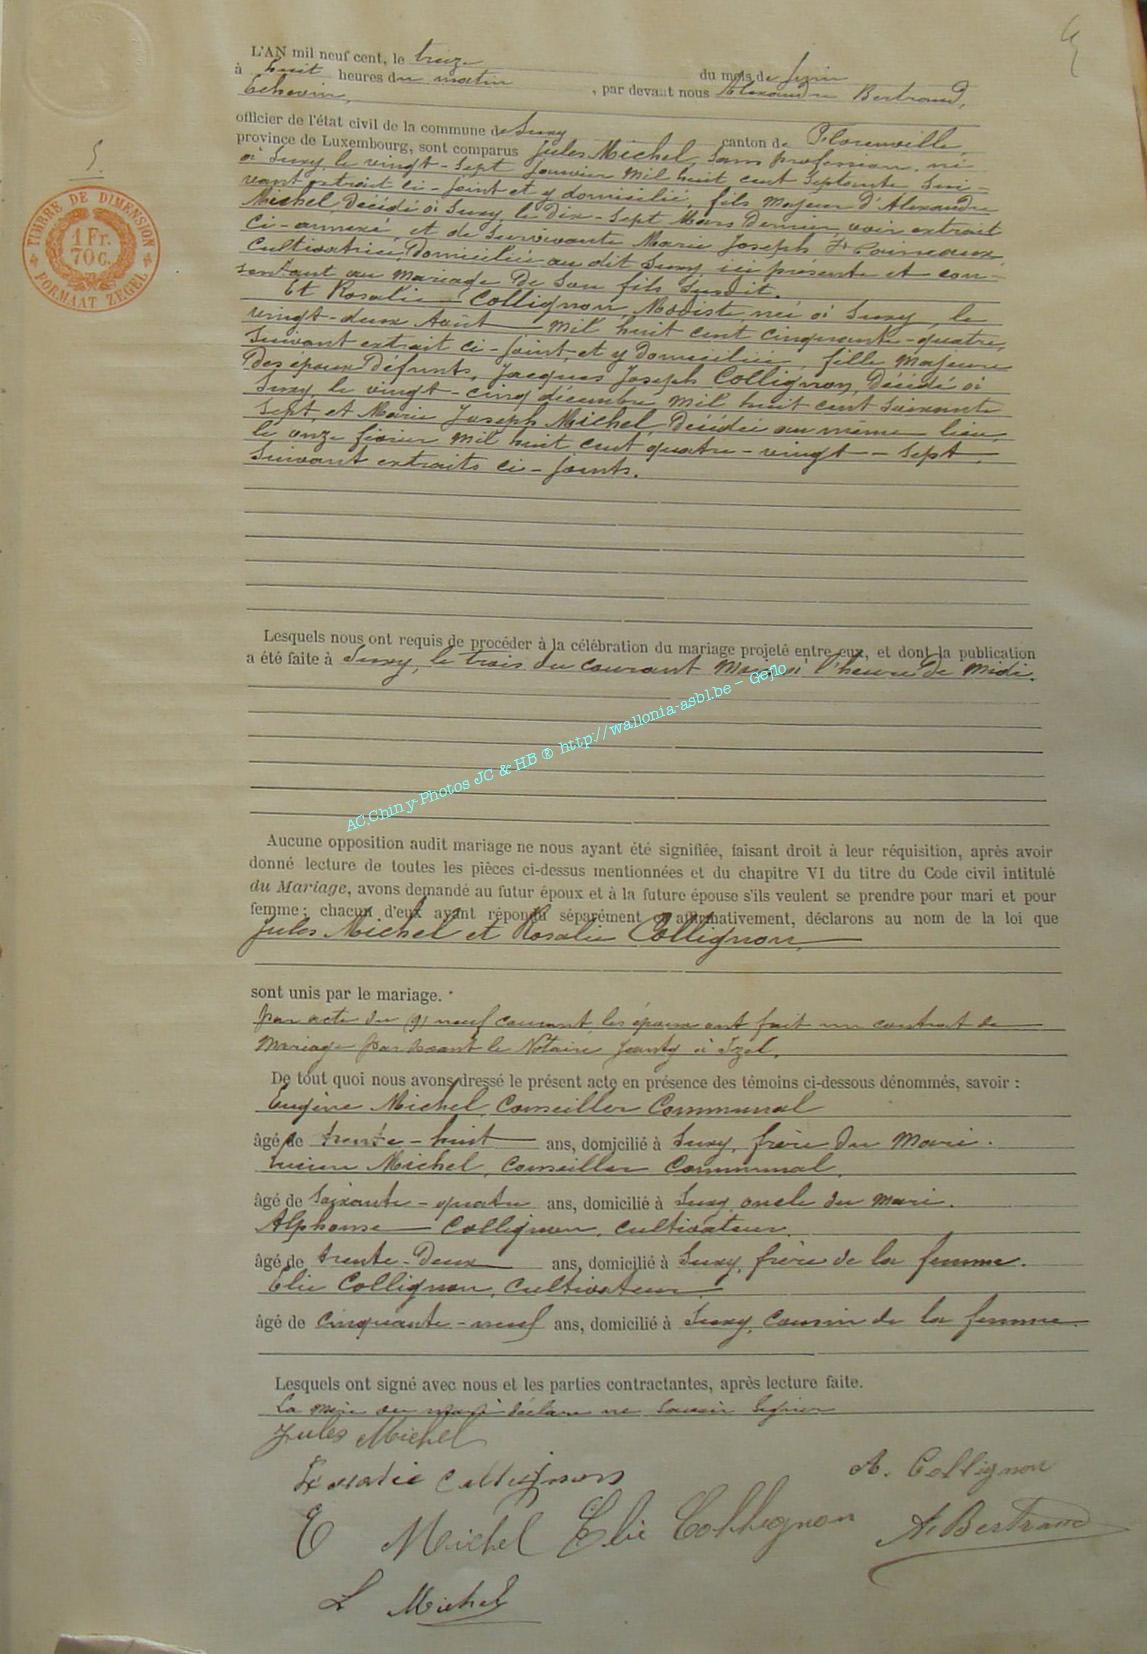 5.
TIMBRE DE DIMENSION
1 Fr.
70 C.
FORMAAT ZEGEL
L'AN mil neuf cent, le treize du mois de Juin
à huit heures du matin, par devant nous Alexandre Bertrand,
Echevin,
officier de l'état civil de la commune de Suxy canton de Florenville,
province de Luxembourg, sont comparus Jules Michel, sans profession, né
à Suxy, le vingt-sept Janvier mil huit cent septante sui-
vant extrait ci-joint et y domicilié, fils majeur d'Alexandre
Michel, décédé à Suxy, le dix-sept Mars dernier, voir extrait
ci-annexé, et de survivante Marie Joseph
Cultivatrice, domiciliée au dit Suxy, ici présente et con-
sentant au mariage de son fils susdit.
Et Rosalie Collignon, Modiste née à Suxy, le
vingt-deux Août mil huit cent cinquante-quatre,
suivant extrait ci-joint, et y domiciliée, fille majeure
des époux défunts, Jacques Joseph Collignon, décédé à
Suxy, le vingt-cinq décembre mil huit cent soixante
sept, et Marie Joseph Michel, décédée au même lieu
le onze février mil huit cent quatre-vingt-sept,
suivant extraits ci-joints.
Lesquels nous ont requis de procéder à la célébration du mariage projeté entre eux, et dont la publication
a été faite à Suxy, le trois du courant Mois à l'heure de Midi.
AC.Chiny-Photos JC & HB ® http://wallonia-asbl.be - Geflo
Aucune opposition audit mariage ne nous ayant été signifiée, faisant droit à leur réquisition, après avoir
donné lecture de toutes les pièces ci-dessus mentionnées et du chapitre VI du titre du Code civil intitulé
du Mariage, avons demandé au futur époux et à la future épouse s'ils veulent se prendre pour mari et pour
femme; chacun d'eux ayant répondu séparément et affirmativement, déclarons au nom de la loi que
Jules Michel et Rosalie Collignon,
sont unis par le mariage.
par acte du (9) neuf courant les époux ont fait un contrat de
Mariage par devant le Notaire Jeanty à Izel.
De tout quoi nous avons dressé le présent acte en présence des témoins ci-dessous dénommés, savoir :
Eugène Michel, Conseiller Communal
âgé de trente-huit ans, domicilié à Suxy, frère du Mari.
Lucien Michel, Conseiller Communal,
âgé de soixante-quatre ans, domicilié à Suxy, oncle du mari.
Alphonse Collignon, cultivateur,
âgé de trente-deux ans, domicilié à Suxy, frère de la femme.
Elie Collignon, cultivateur,
âgé de cinquante-neuf ans, domicilié à Suxy, cousin de la femme.
Lesquels ont signé avec nous et les parties contractantes, après lecture faite.
La mère du mari déclare ne savoir signer
Jules Michel
Rosalie Collignon A. Collignon
E Michel Elie Collignon A. Bertrand
L Michel